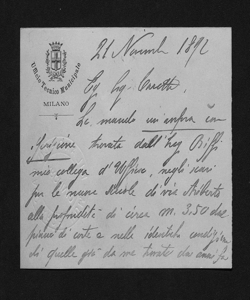 Ufficio Tecnico Municipale
MILANO
21 Novemb 1892
Le mando un anfora con
trovata dall'Ing. Biffi
mio collega d'Ufficio, negli scavi
per le nuove Scuole di via Ariberto
alla profondità di circa m. 3.50 dal
piano di corte e nelle identiche condizioni
di quelle già da me trovate